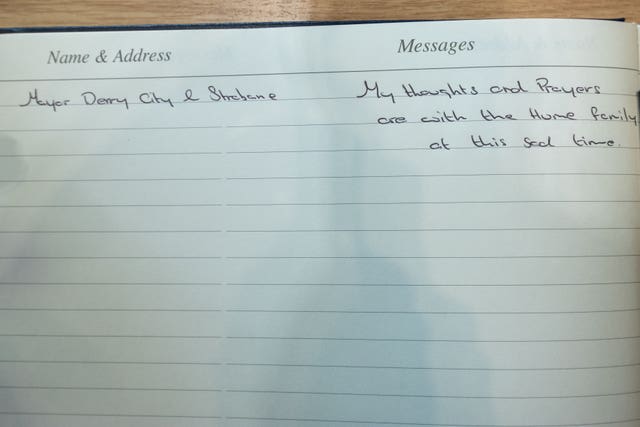 Name & Address
Messages
Mayor Derry City & Strabane
My thoughts and Prayers
are with the Hume family
at this sad time.